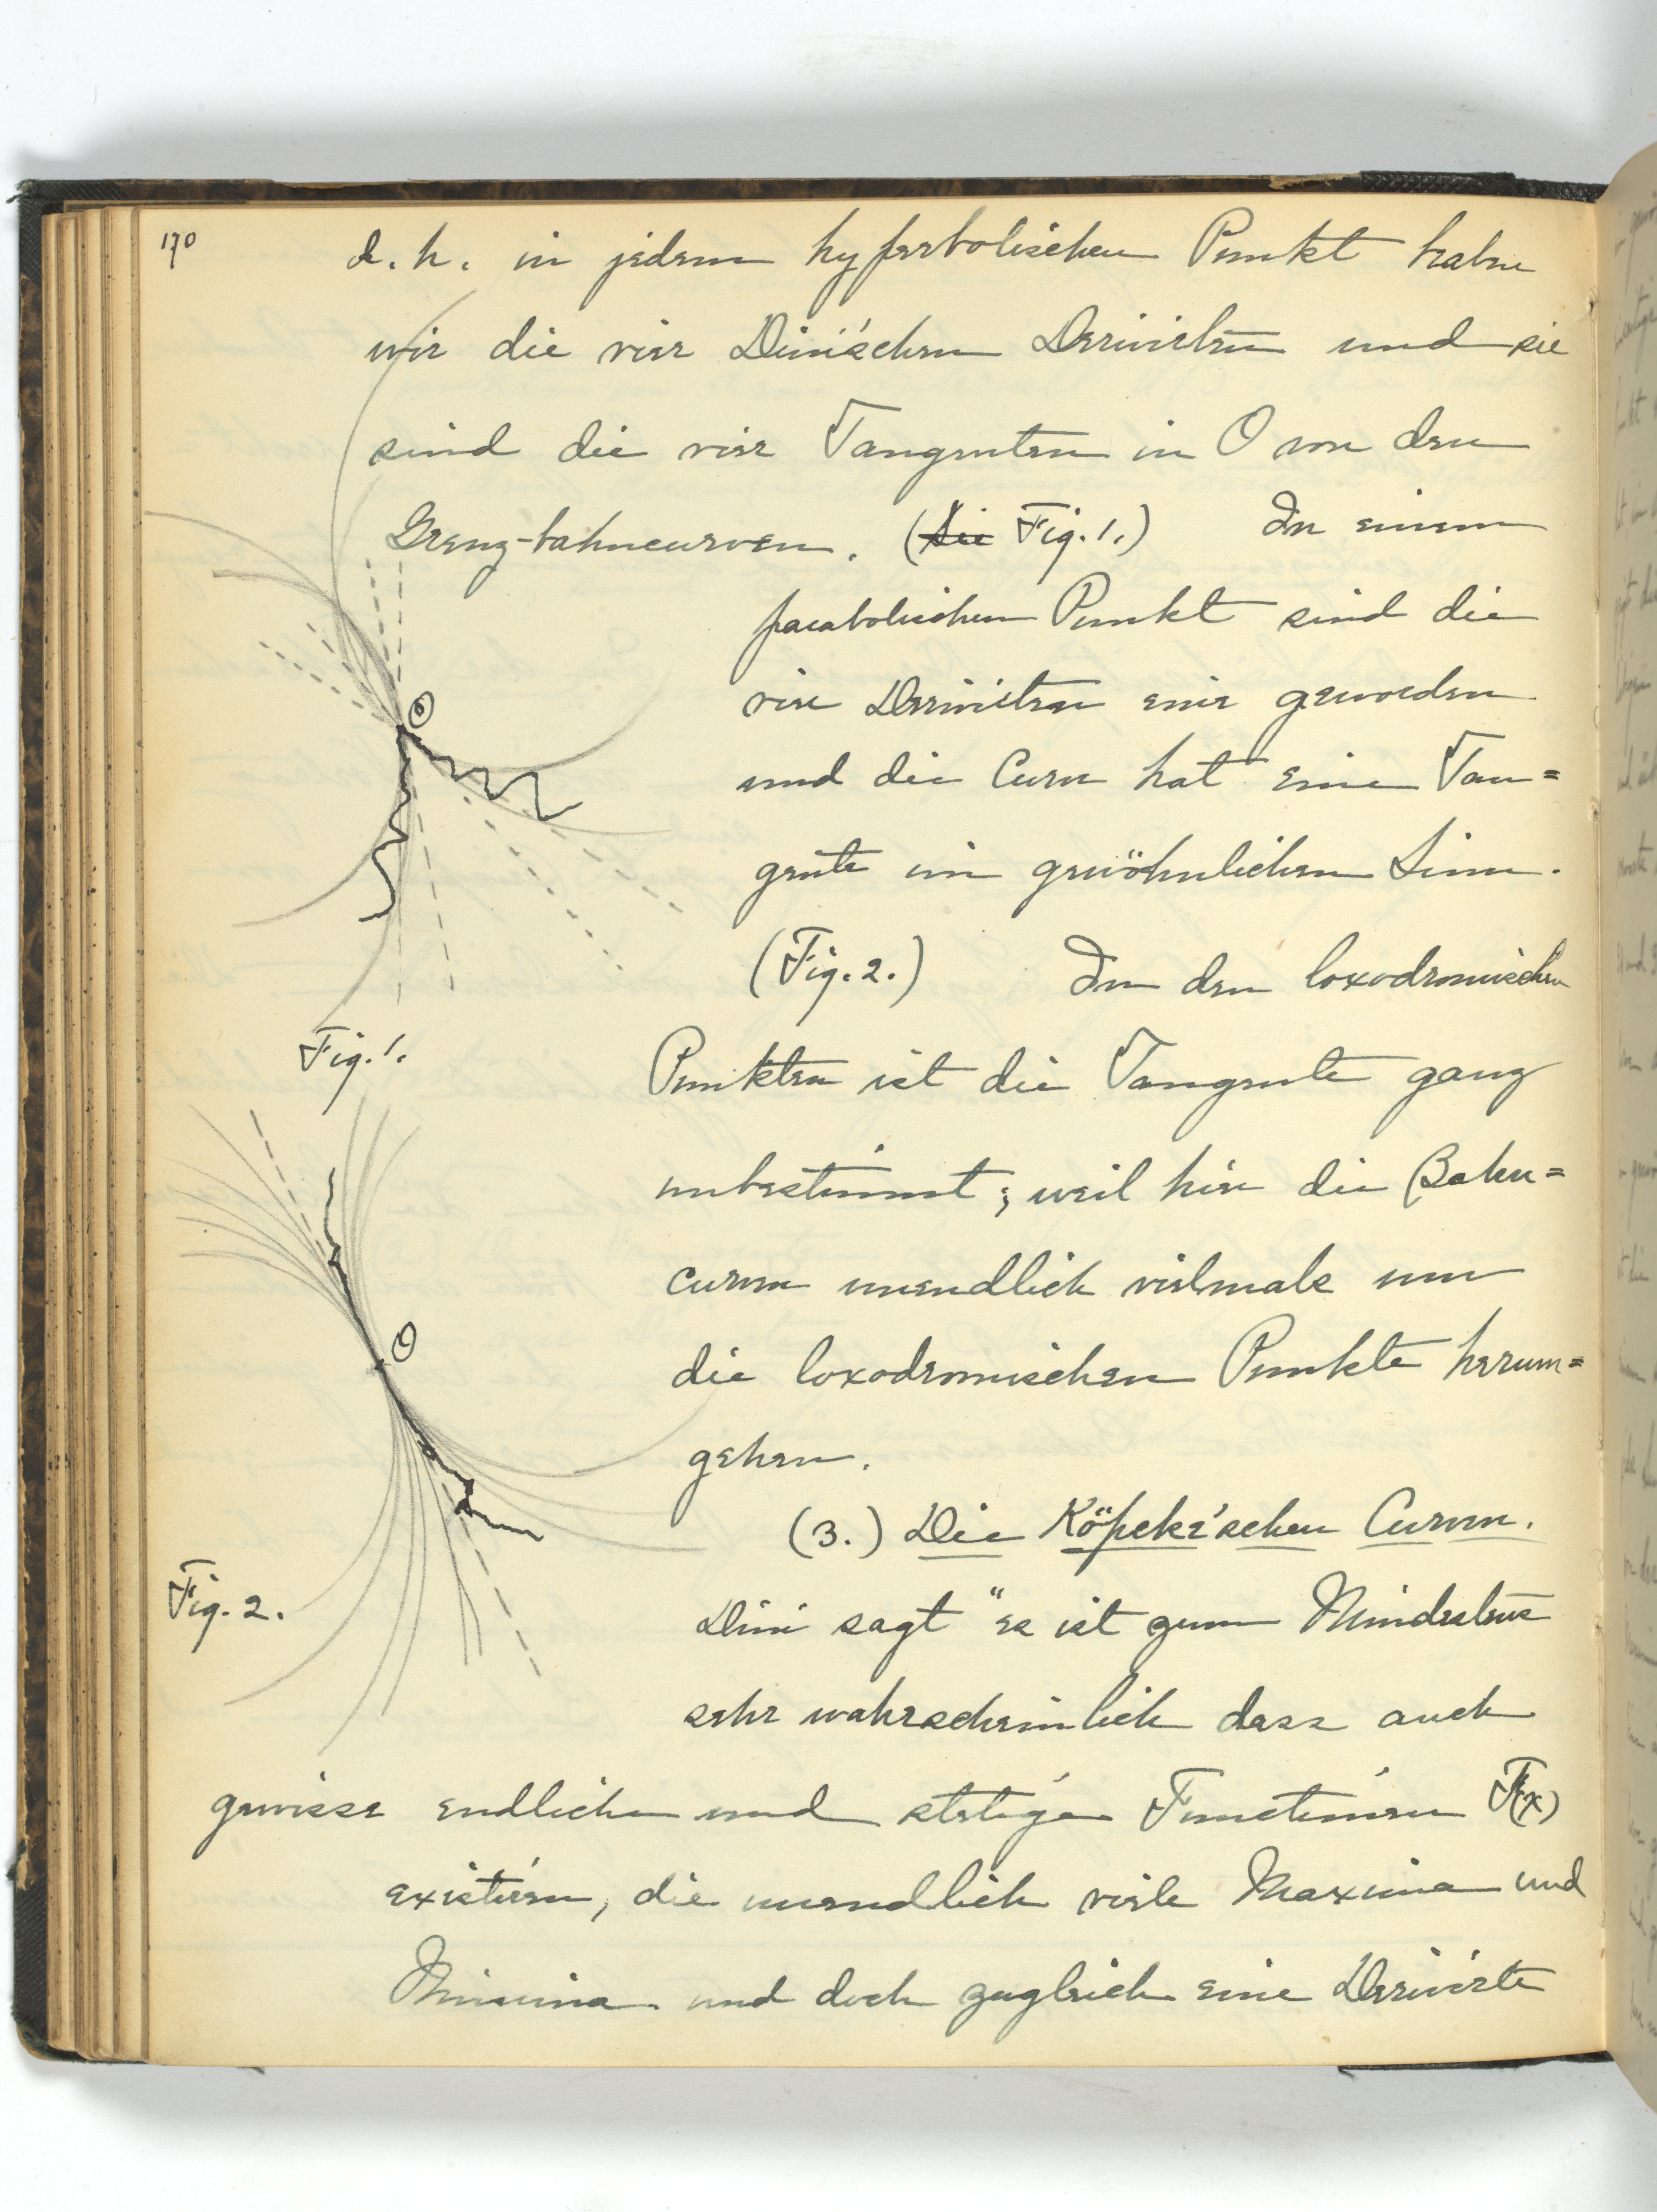 170
d. h. in jedem hyperbolischen Punkt haben
wir die vier Dini'schen Derivirten und sie
sind die vier Tangenten in O von den
Grenz-bahncurven. (Sie Fig. 1.) In einem
parabolischen Punkt sind die
vier Derivirten eine geworden
und die Curve hat eine Tan=
gente im gewöhnlichen Sinn.
(Fig. 2.) In den loxodromischen
Punkten ist die Tangente ganz
unbestimmt; weil hier die Bahn=
curven unendlich vielmals um
die loxodromischen Punkte herum=
gehen.
(3.) Die Köpcke'schen Curven.
Dini sagt "es ist zum Mindestens
sehr wahrscheinlich dass auch
gewisse endliche und stetige Functionen F(x)
existiren, die unendlich viele Maxima und
Minima und doch zugleich eine Derivirte
O
Fig. 1.
O
Fig. 2.